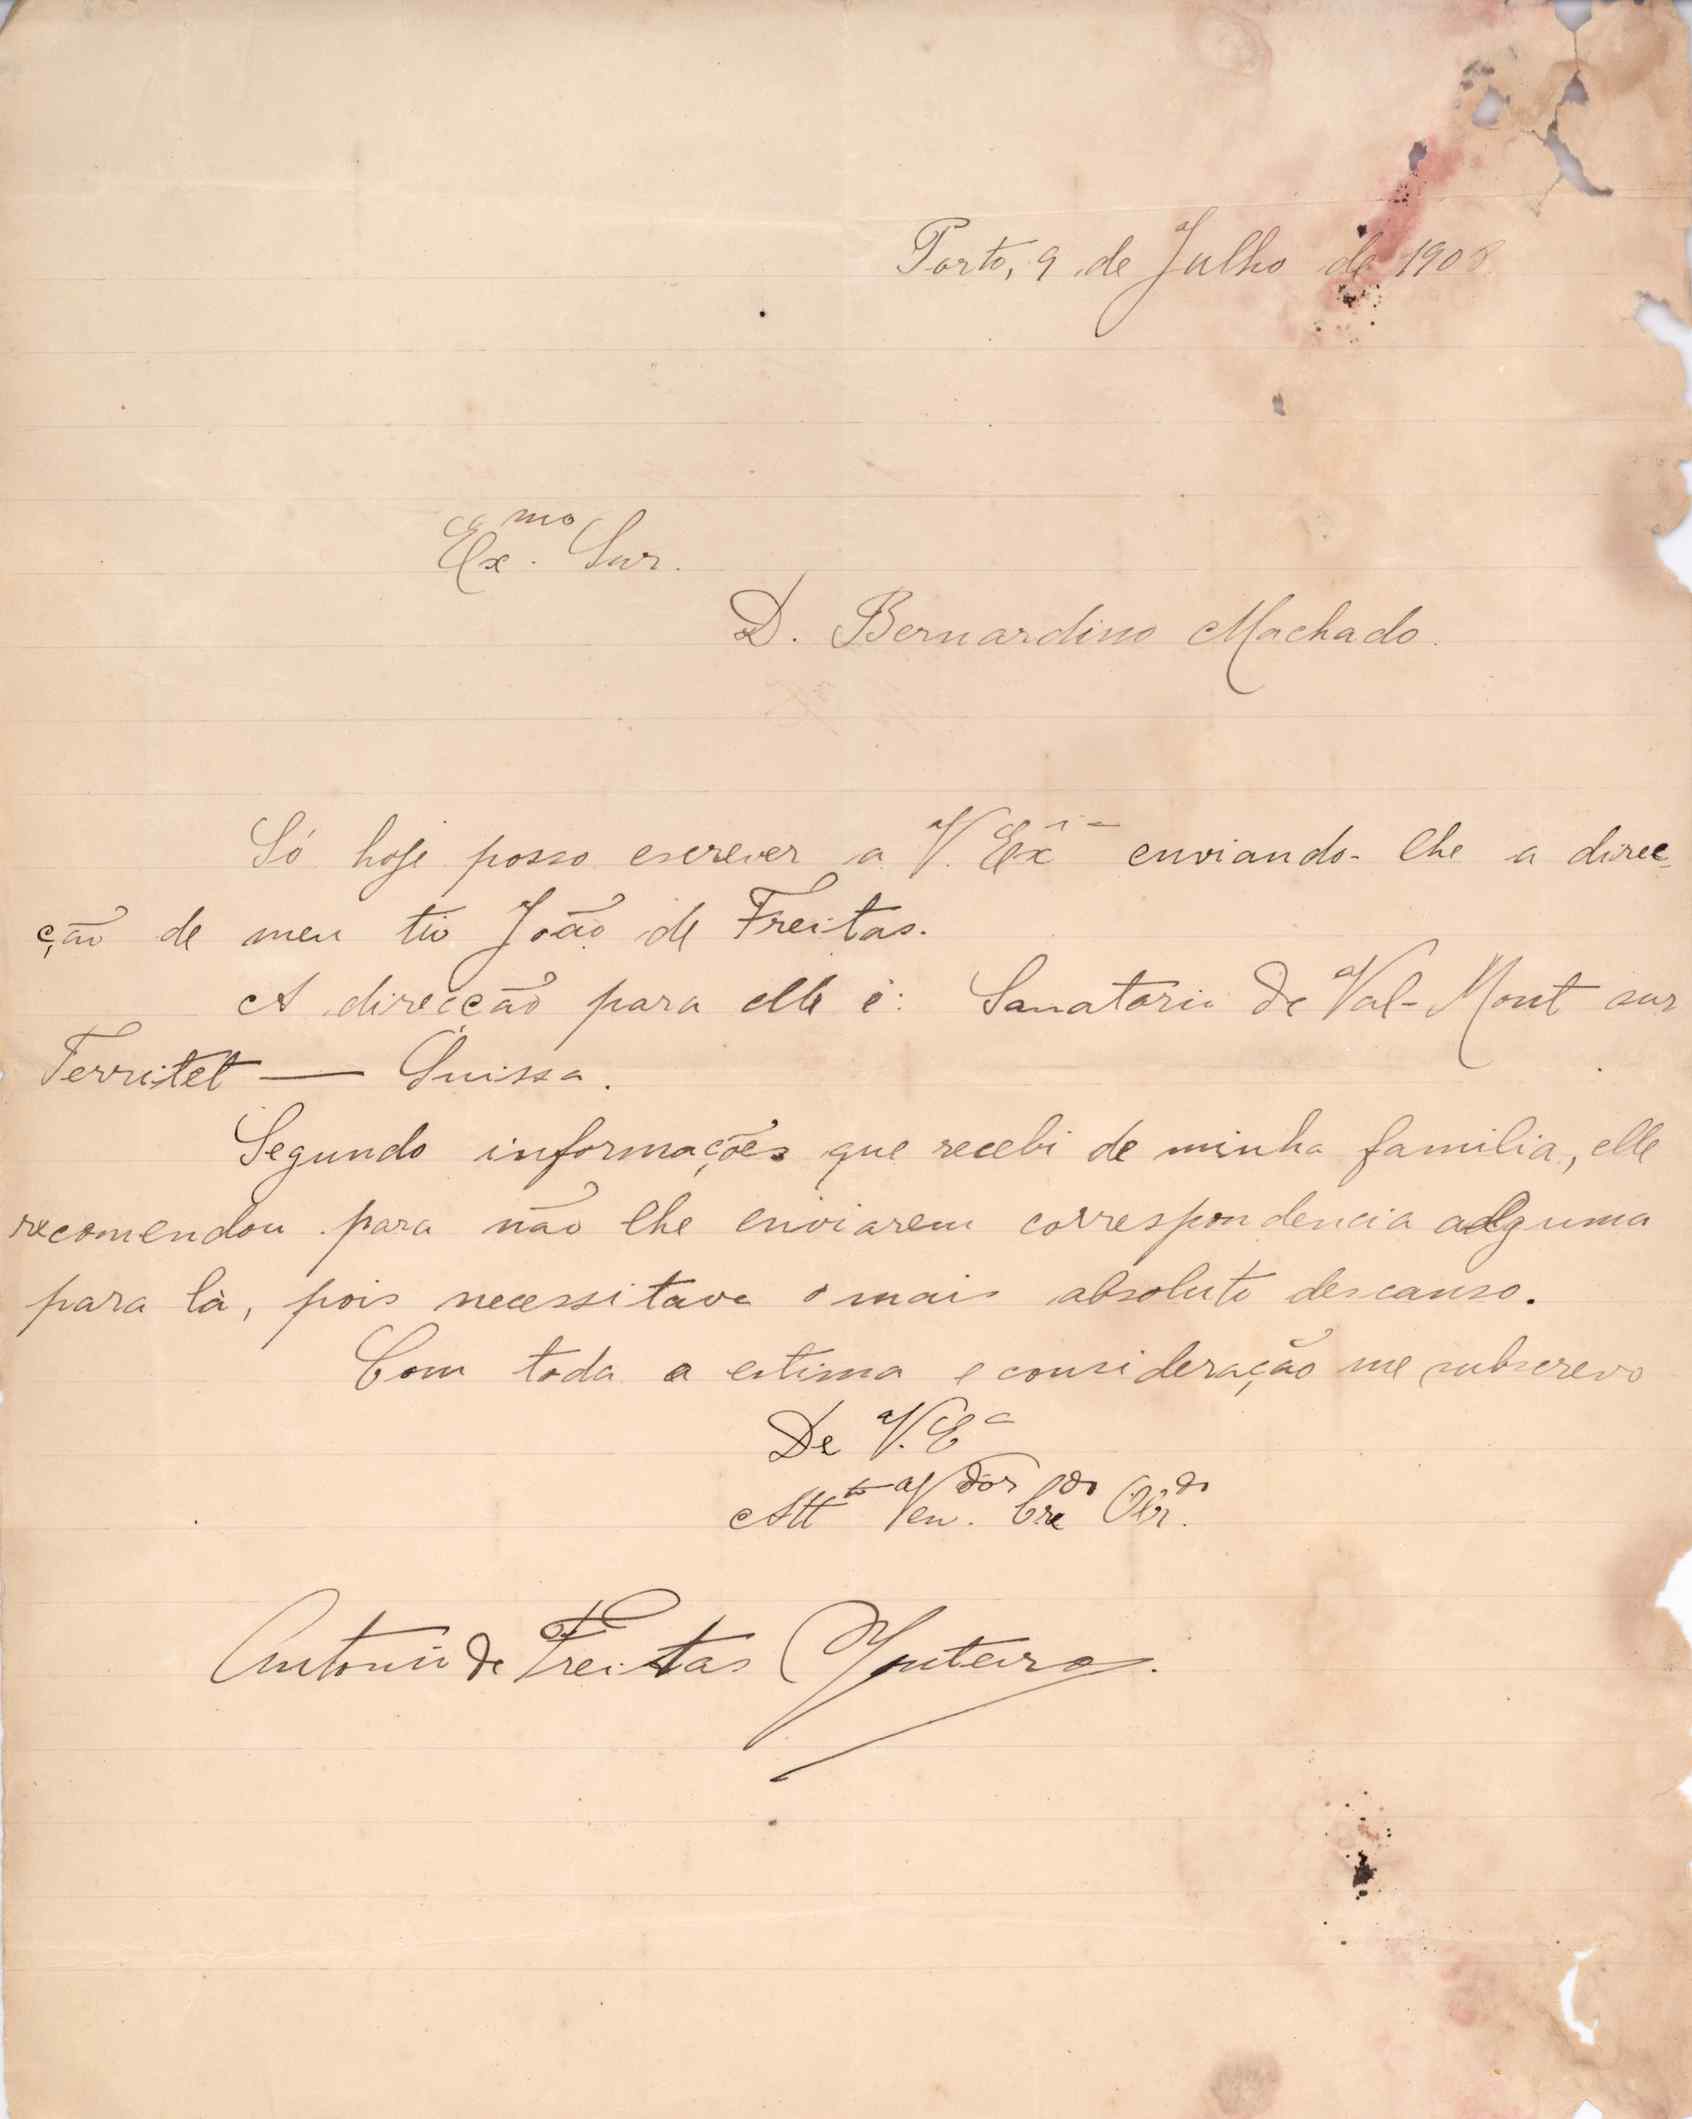 Porto, 9 de Julho de 1908
Ex.mo Snr.
D. Bernardino Machado.
Só hoje posso escrever a V. Exia enviando-lhe a direc-
ção de meu tio João de Freitas.
A direcção para elle é: Sanatorio de Val-Mont sur
Territet — Suissa.
Segundo informações que recebi de minha familia, elle
recomendou para não lhe enviarem correspondencia alguma
para là, pois necessitava o mais absoluto descanso.
Com toda a estima e consideração me subscrevo
De V. Ea
Attto Ven.dor Credo Obr.do
Antonio de Freitas